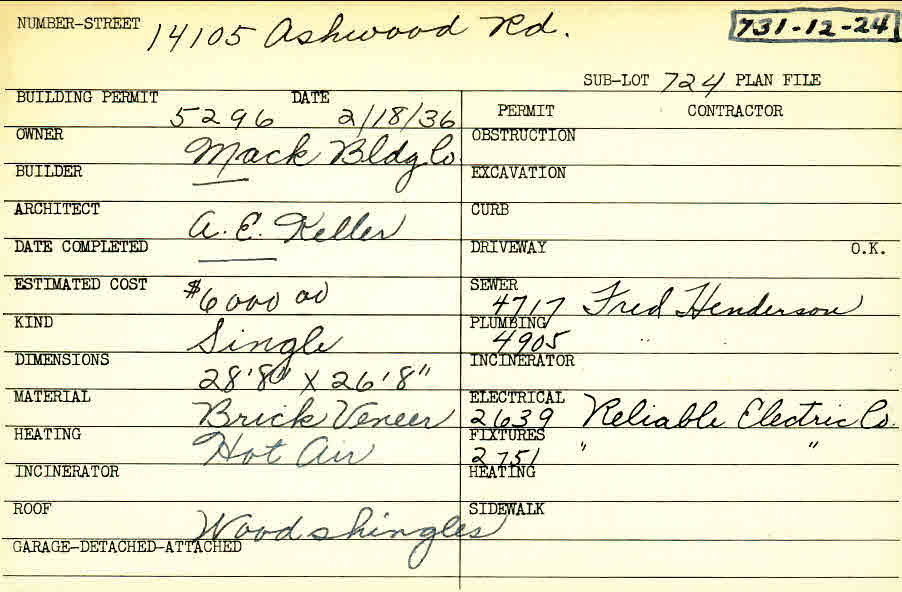 NUMBER-STREET 14105 Ashwood Rd. 731-12-24
SUB-LOT 724 PLAN FILE
BUILDING PERMIT 5296 DATE 2/18/36 PERMIT CONTRACTOR
OWNER Mack Bldg Co. OBSTRUCTION
BUILDER — EXCAVATION
ARCHITECT A. E. Keller CURB
DATE COMPLETED — DRIVEWAY O.K.
ESTIMATED COST $6000 00 SEWER 4717 Fred Henderson
KIND Single PLUMBING 4905 "
DIMENSIONS 28'8" X 26'8" INCINERATOR
MATERIAL Brick Veneer ELECTRICAL 2639 Reliable Electric Co.
HEATING Hot Air FIXTURES 2751 " "
INCINERATOR HEATING
ROOF Wood shingles SIDEWALK
GARAGE-DETACHED-ATTACHED